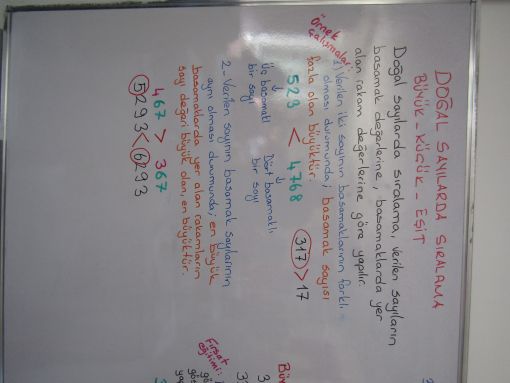 DOĞAL SAYILARDA SIRALAMA
BÜYÜK - KÜÇÜK - EŞİT
Doğal sayılarda sıralama, verilen sayıların
basamak değerlerine, basamaklarda yer
alan rakam değerlerine göre yapılır.
Örnek
Çalışmalar
1) Verilen iki sayının basamaklarının farklı
olması durumunda; basamak sayısı
fazla olan büyüktür.
317 > 17
523 < 4768
Üç basamaklı
bir sayı
Dört basamaklı
bir sayı
2- Verilen sayının basamak sayılarının
aynı olması durumunda; en büyük
basamaklarda yer alan rakamların
sayı değeri büyük olan, en büyüktür.
467 > 367
5293 < 6293
Fırsat
eğitimi: